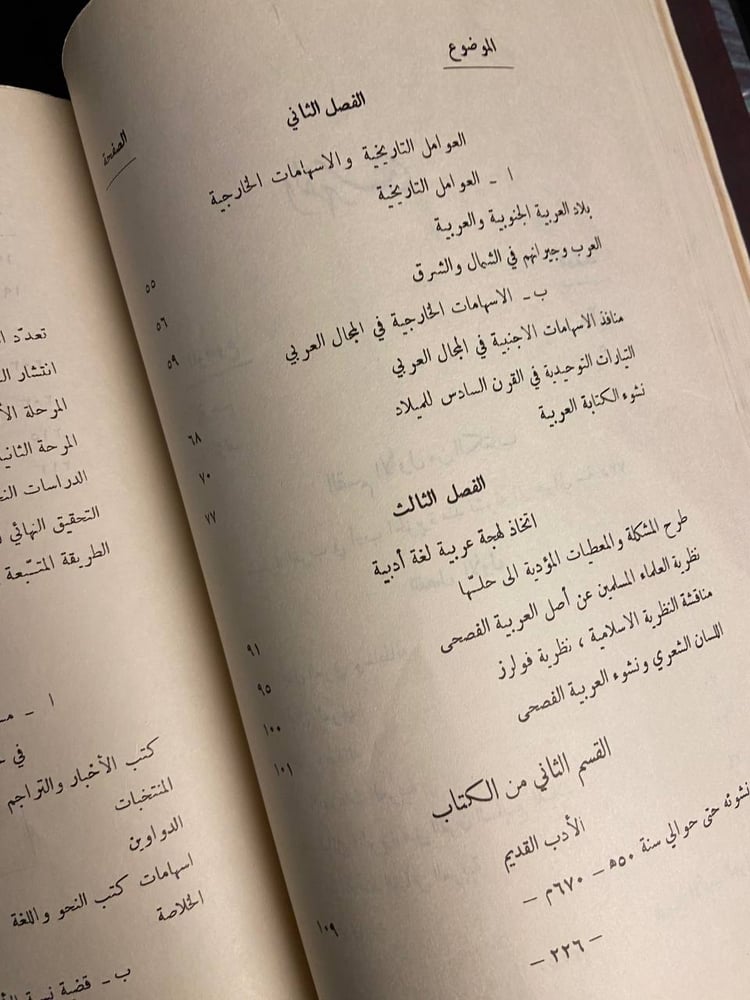 الموضوع
الصفحة
الفصل الثاني
العوامل التاريخية والاسهامات الخارجية
ا - العوامل التاريخية
بلاد العربية الجنوبية والعربية ٥٥
العرب وجيرانهم في الشمال والشرق ٥٦
ب - الاسهامات الخارجية في المجال العربي ٥٩
منافذ الاسهامات الاجنبية في المجال العربي ٦٨
التيارات التوحيدية في القرن السادس للميلاد ٧٠
نشوء الكتابة العربية ٧٧
الفصل الثالث
اتخاذ لهجة عربية لغة أدبية
طرح المشكلة والمعطيات المؤدية الى حلّها ٩١
نظرية العلماء المسلمين عن أصل العربية الفصحى ٩٥
مناقشة النظرية الاسلامية ، نظرية فولرز ١٠٠
اللسان الشعري ونشوء العربية الفصحى ١٠١
القسم الثاني من الكتاب
الأدب القديم
نشوئه حتى حوالي سنة ٥٠ه - ٦٧٠م - ١٠٩
- ٢٢٦ -
تعدّد
انتشار
المرحلة
المرحة الثانية
الدراسات
التحقيق النهائي
الطريقة المتبّعة
ا -
في
كتب الأخبار والتراجم
المنتخبات
الدواوين
اسهامات كتب النحو واللغة
الخلاصة
ب - قضية